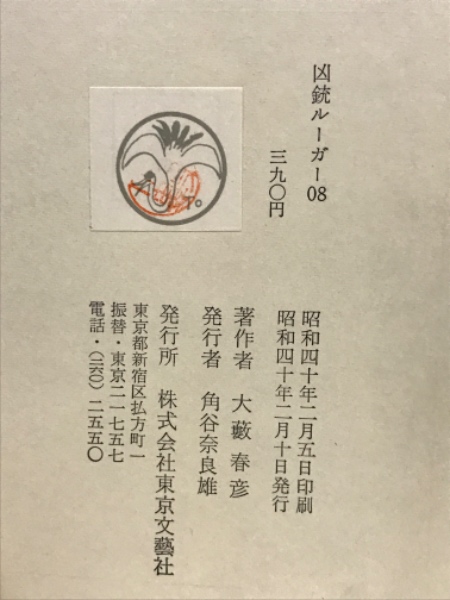 凶銃ルーガー08
三九〇円
昭和四十年二月五日印刷
昭和四十年二月十日発行
著作者 大藪春彦
発行者 角谷奈良雄
発行所 株式会社東京文藝社
東京都新宿区払方町一
振替・東京二一七五七
電話・(三六〇)二五五〇